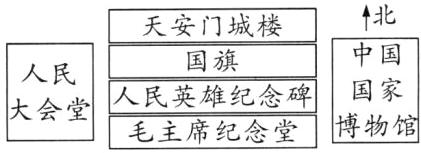 天安门城楼
↑北
人民
大会堂
国旗
人民英雄纪念碑
毛主席纪念堂
中国
国家
博物馆